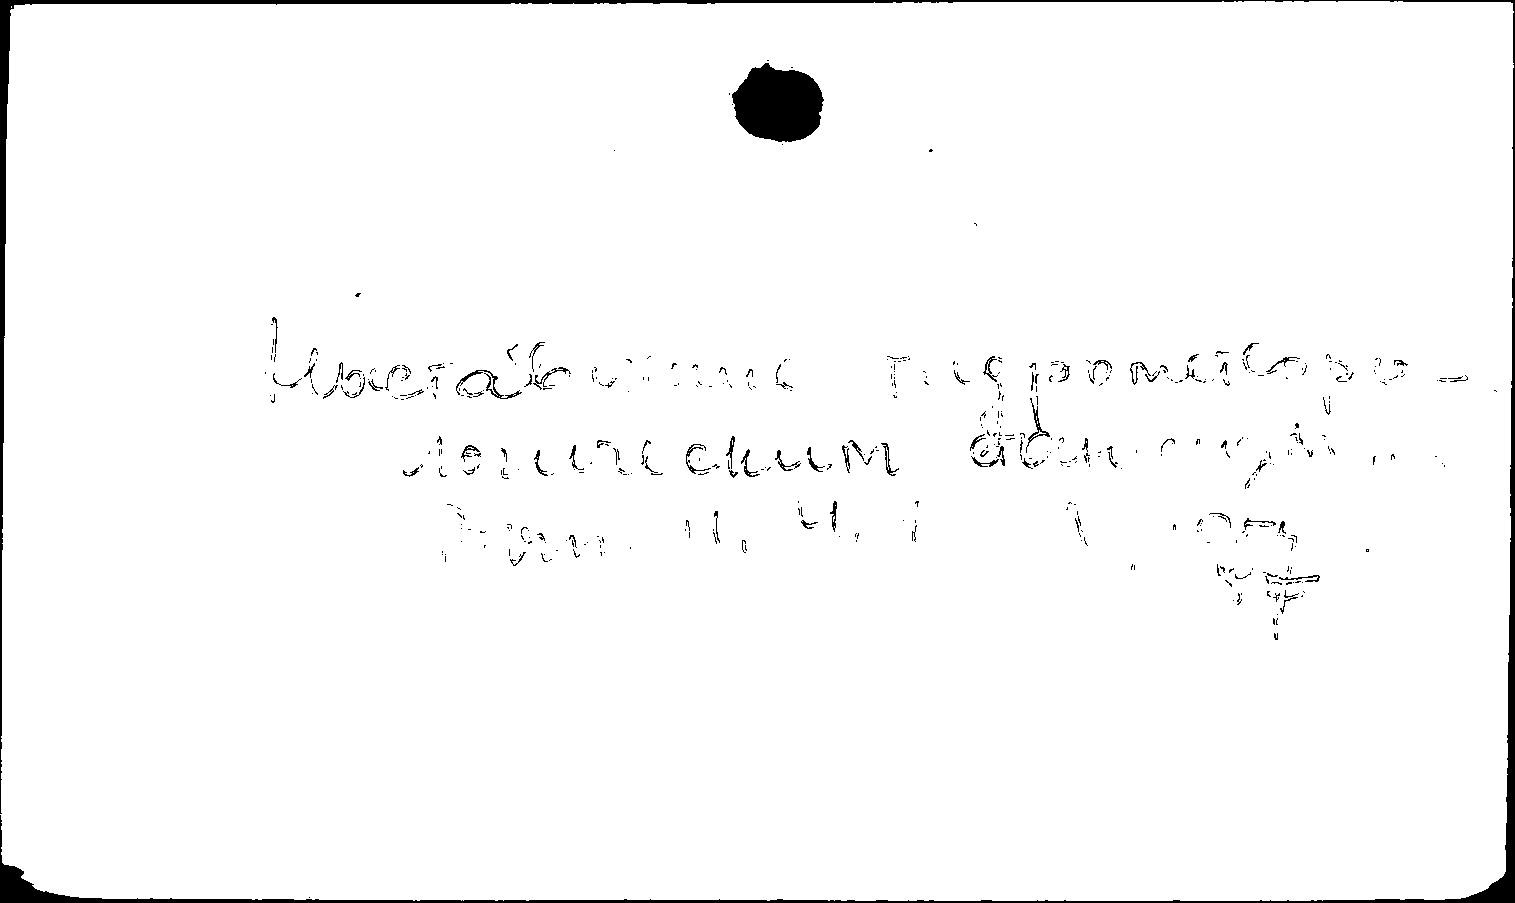 Наставление гидрометеоро-
логическим станциям...
Вып. 11. Ч. 1